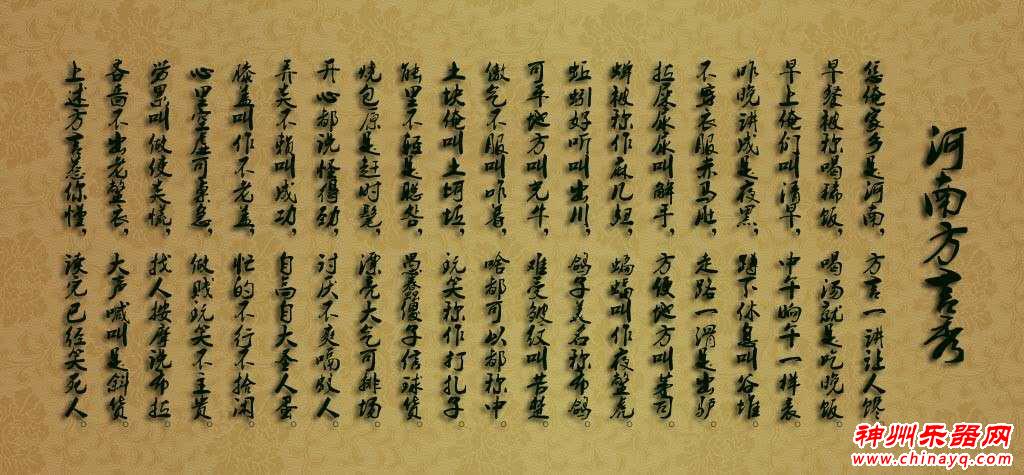 河南方言秀
您俺家乡是河南，方言一讲让人馋。
早餐被称喝稀饭，喝汤就是吃晚饭。
早上俺们叫清早，中午晌午一样表。
昨晚讲成是夜黑，蹲下休息叫谷堆。
不穿衣服赤马肚，走路一滑是出驴。
拉屎尿尿叫解手，方便地方叫茅司。
蝉被称作麻几妞，蝙蝠叫作夜蟞虎。
蚯蚓好听叫出川，鸽子美名称布鸽。
可平地方叫光牛，难受皱纹叫苦楚。
傲气不服叫咋着，啥都可以都称中。
土块俺叫土坷垃，玩笑称作打扎子。
能里不能是聪咎，愚蠢傻子信球货。
烧包原是赶时髦，漂亮大气可排场。
开心都说怪得劲，讨厌不爽嗝蚁人。
弄美不赖叫成功，自高自大圣人蛋。
膝盖叫作不老盖，忙的不行不拾闲。
心里空虚可素急，做贱玩笑不主贵。
劳累叫做使美慌，找人按摩说布拉。
吝啬不出老鳖衣，大声喊叫是斜货。
上述方言惹你懂，读完已经笑死人。
神州乐器网
www.chinayq.com